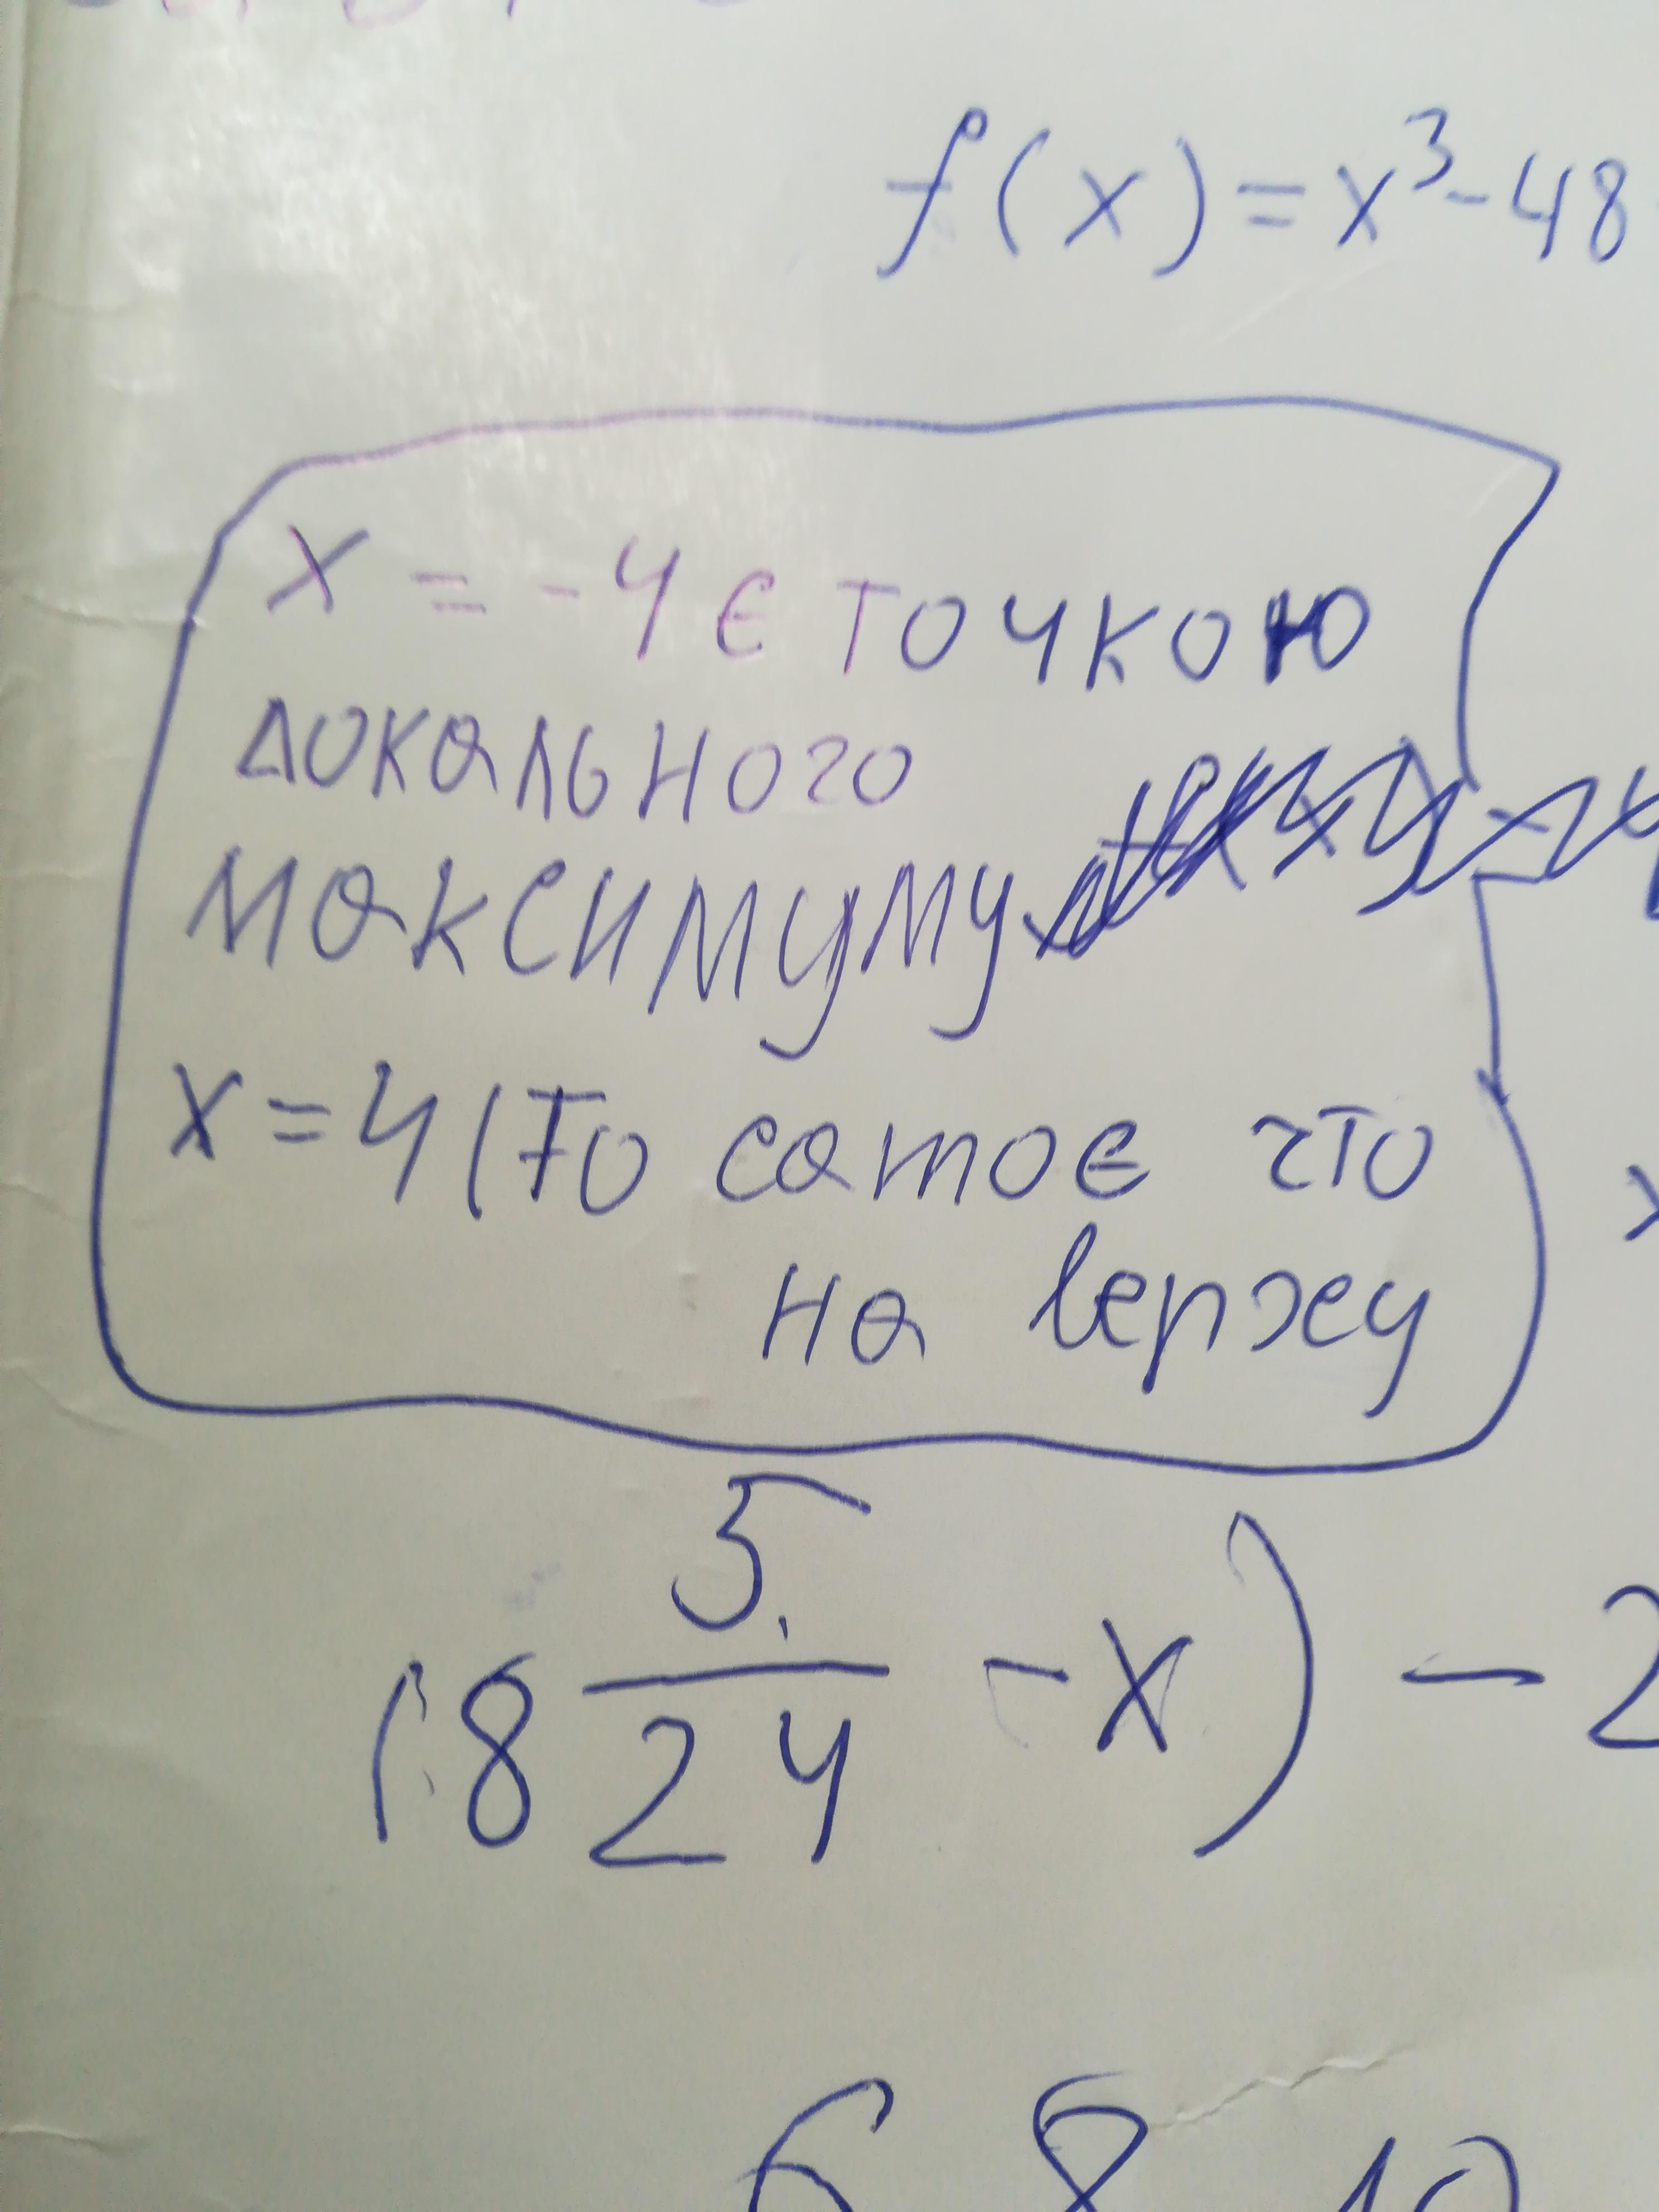 f(x)=x³-48
x = -4 є точкою
локального
максимуму
x=4(То самоє что
на верху
(8 5/24 -x) - 2
6 8 10